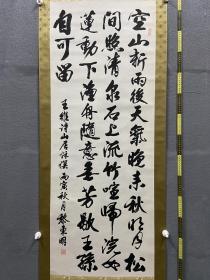 空山新雨後天氣晚来秋明月松
間照清泉石上流竹喧歸浣女
蓮動下漁舟隨意春芳歇王孫
自可留
王維詩山居秋暝 丙寅秋月 東明